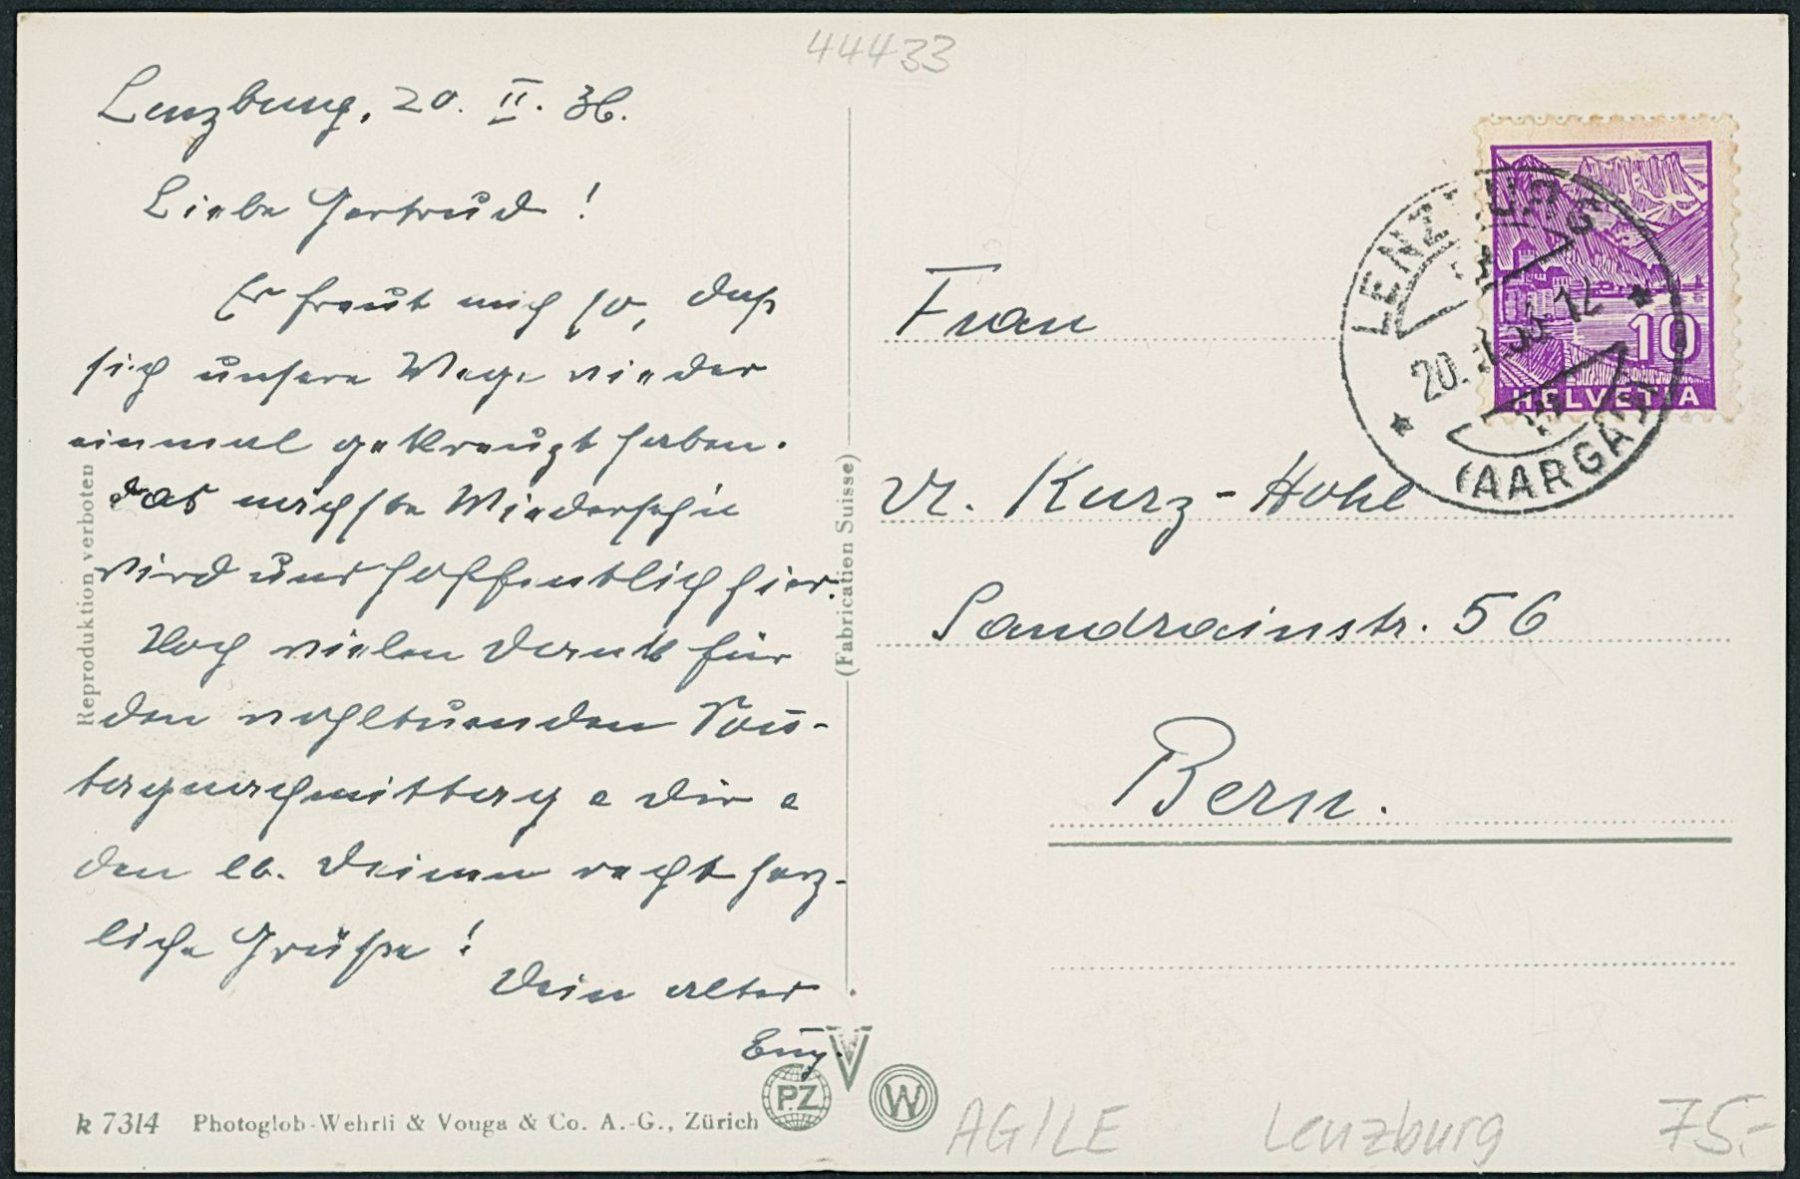 44433
Lenzburg, 20. II. 36.
Liebe Gertrud!
Es freut mich so, daß
sich unsere Wege wieder
einmal gekreuzt haben.
das nächste Wiedersehn
wird uns hoffentlich hier.
Noch vielen Dank für
den wohltuenden Sonn-
tagnachmittag & Dir &
den lb. Deinen recht herz-
liche Grüße!
Dein alter
Eug.
Reproduktion verboten
(Fabrication Suisse)
k 7314 Photoglob-Wehrli & Vouga & Co. A.-G., Zürich
PZ
V
W
HELVETIA
10
LENZBURG
20. 36. 12
(AARGAU)
Frau
Kurz-Hohl
Sandrainstr. 56
Bern.
AG/LE Lenzburg 75.-